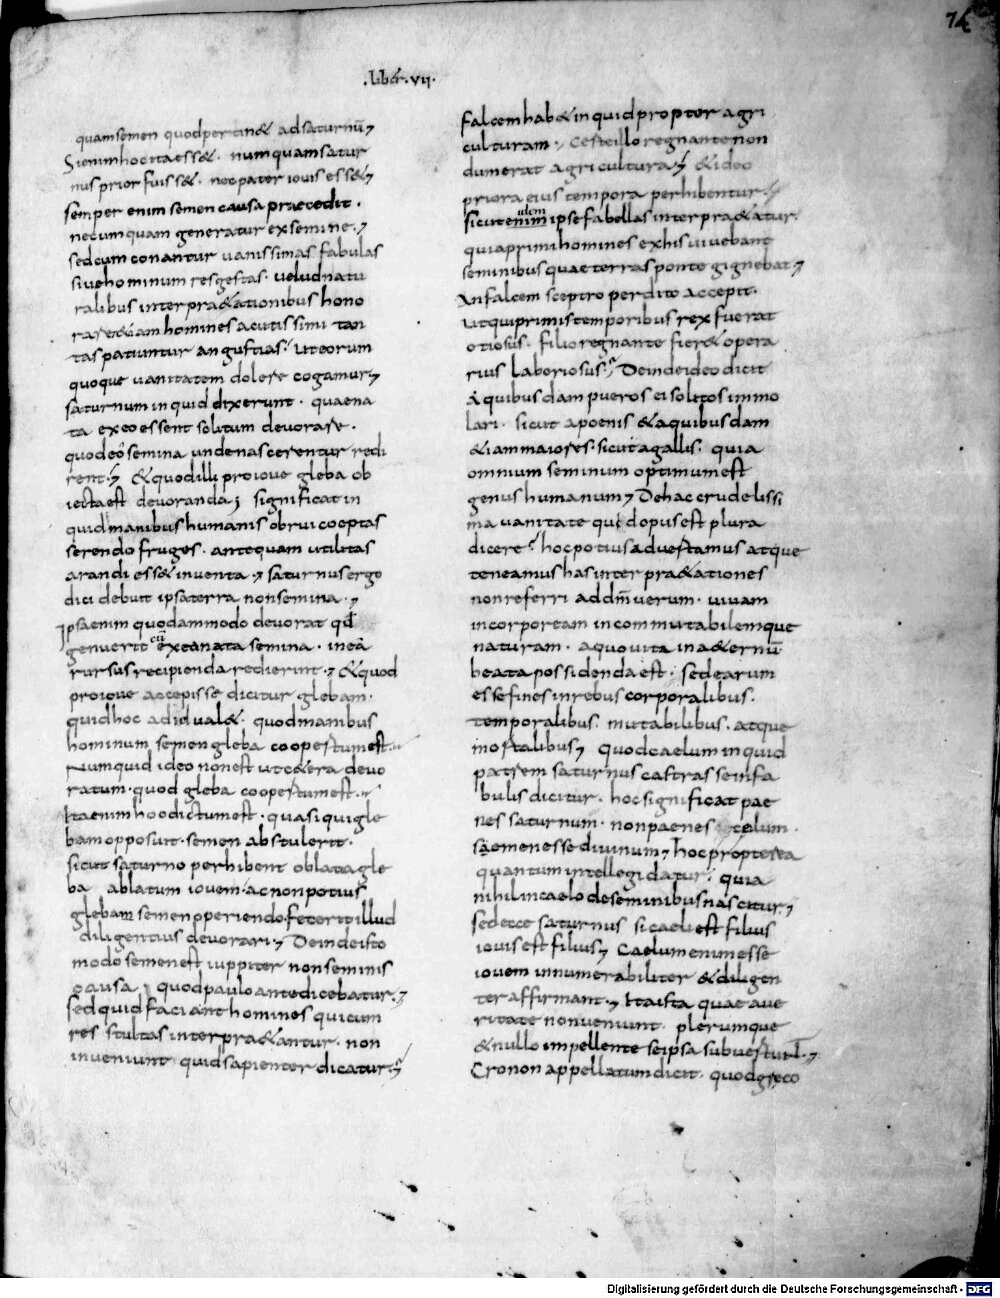 74
.liber.vii.
quam semen quod pertin& ad saturnū,
Si enim hoc ita ess&. numquam satur
nus prior fuiss&. nec pater iouis ess&,
semper enim semen causa praecedit.
nec umquam generatur ex semine.,
sed cum conantur uanissimas fabulas
siue hominum res gestas. uelud natu
ralibus interpra&ationibus hono
rare &iam homines acutissimi tan
tas patiuntur angustias. ut eorum
quoque uanitatem dolere cogamur,
saturnum inquid dixerunt. quae na
ta ex eo essent solitum deuorare.
quod eo semina unde nascerentur redi
rent., & quod illi pro ioue gleba ob
iecta est deuoranda; significat in
quid manibus humanis obrui coeptas
serendo fruges. antequam utilitas
arandi ess& inuenta, saturnus ergo
dici debuit ipsa terra non semina.,
Ipsa enim quodammodo deuorat qd
genuerit cū ex ea nata semina. in eā
rursus recipienda redierint., & quod
pro ioue accepisse dicitur glebam.
quid hoc ad id ual&. quod manibus
hominum semen gleba coopertum est.
Numquid ideo non est ut c&era deuo
ratum. quod gleba coopertum est.
Ita enim hoc dictum est. quasi qui gle
bam opposuit. semen abstulerit.
sicut saturno perhibent oblata gle
ba ablatum iouem. ac non potius
glebam semen operiendo fecerit illud
diligentius deuorari, Deinde isto
modo semen est iuppiter non seminis
causa quod paulo ante dicebatur.,
sed quid faciant homines qui cum
res stultas interpra&antur. non
inueniunt quid sapienter dicatur.
falcem hab& inquid propter agri
culturam., Certe illo regnante non
dum erat agricultura, & ideo
priora eius tempora perhibentur.
uidem
sicut enim ipse fabellas interpra&atur.
quia primi homines ex his uiuebant
seminibus quae terra sponte gignebat,
An falcem sceptro perdito accepit.
ut qui primis temporibus rex fuerat
otiosus. filio regnante fier& opera
rius laboriosus. Deinde ideo dicit
a quibusdam pueros ei solitos immo
lari. sicut a poenis & a quibusdam
&iam maiores. sicut a gallis. quia
omnium seminum optimum est
genus humanum, De hac crudelissi
ma uanitate quid opus est plura
dicere. hoc potius aduertamus atque
teneamus has interpra&ationes
non referri ad dm̄ uerum. uiuam
incorpoream incommutabilemque
naturam. a quo uita in a&ernū
beata possidenda est. sed earum
esse fines in rebus corporalibus.
temporalibus. mutabilibus. atque
mortalibus, quod caelum inquid
patrem saturnus castrasse in fa
bulis dicitur. hoc significat pae
nes saturnum. non paenes celum
semen esse diuinum, hoc propterea
quantum intellegi datur. quia
nihil in caelo de seminibus nascitur.,
sed ecce saturnus si caeli est filius
iouis est filius, Caelum enim esse
iouem innumerabiliter & diligen
ter affirmant., Ita ista quae a ue
ritate non ueniunt. plerumque
& nullo impellente se ipsa subuertunt.,
Cronon appellatum dicit. quod greco
Digitalisierung gefördert durch die Deutsche Forschungsgemeinschaft - DFG